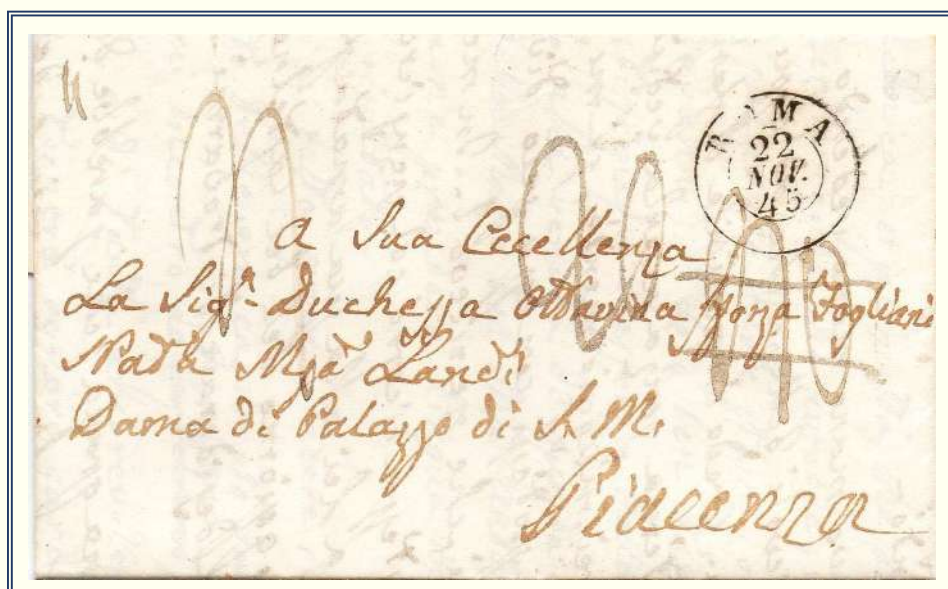 ROMA
22
NOV.
45
A Sua Eccellenza
La Sigª Duchessa Ottavina Sforza Fogliani
Nata Msa Landi
Dama di Palazzo di S. M.
Piacenza